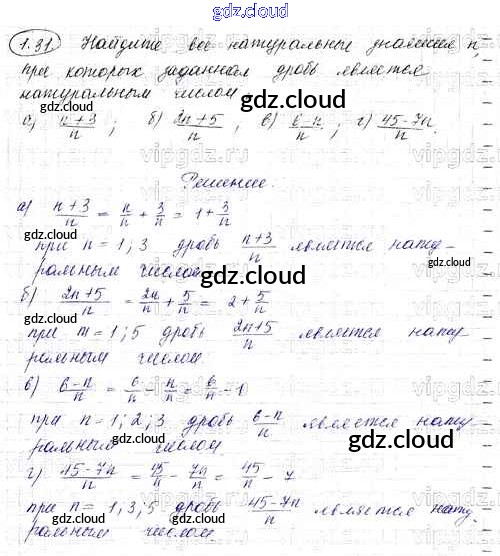 gdz.cloud
1.31 Найдите все натуральные значения n,
при которых заданная дробь является
натуральным числом.
gdz.cloud
а) (n+3)/n ; б) (2n+5)/n ; в) (6-n)/n ; г) (45-7n)/n
Решение.
а) (n+3)/n = n/n + 3/n = 1 + 3/n
gdz.cloud
при n = 1; 3 дробь (n+3)/n является нату-
ральным числом
gdz.cloud
б) (2n+5)/n = 2n/n + 5/n = 2 + 5/n
при m = 1; 5 дробь (2n+5)/n является нату
ральным числом
gdz.cloud
в) (6-n)/n = 6/n - n/n = 6/n - 1
при n = 1; 2; 3 дробь (6-n)/n является нату
ральным числом.
gdz.cloud
г) (45-7n)/n = 45/n - 7n/n = 45/n - 7
при n = 1, 3; 5 дробь (45-7n)/n является нату
ральным числом
gdz.cloud